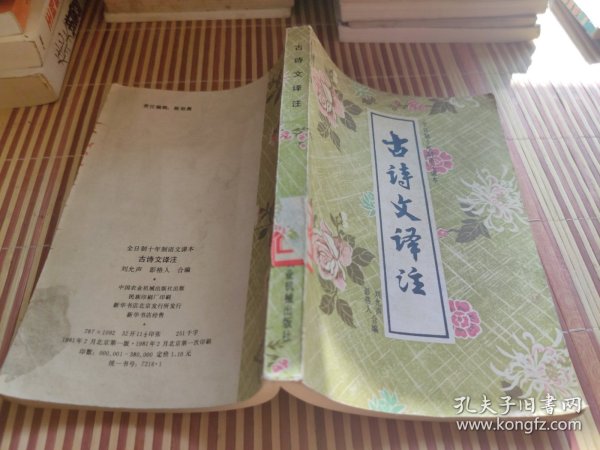 古诗文译注
古诗文译注
刘允声
彭格人 合编
业机械出版社
全日制十年制语文课本
古诗文译注
刘允声 彭格人 合编
中国农业机械出版社出版
民族印刷厂印刷
新华书店北京发行所发行
新华书店经售
787×1092 32开 11⅛印张 251千字
1981年2月北京第一版·1981年2月北京第一次印刷
印数:000,001—380,000 定价1.10元
统一书号:7216·1
孔夫子旧书网
www.kongfz.com